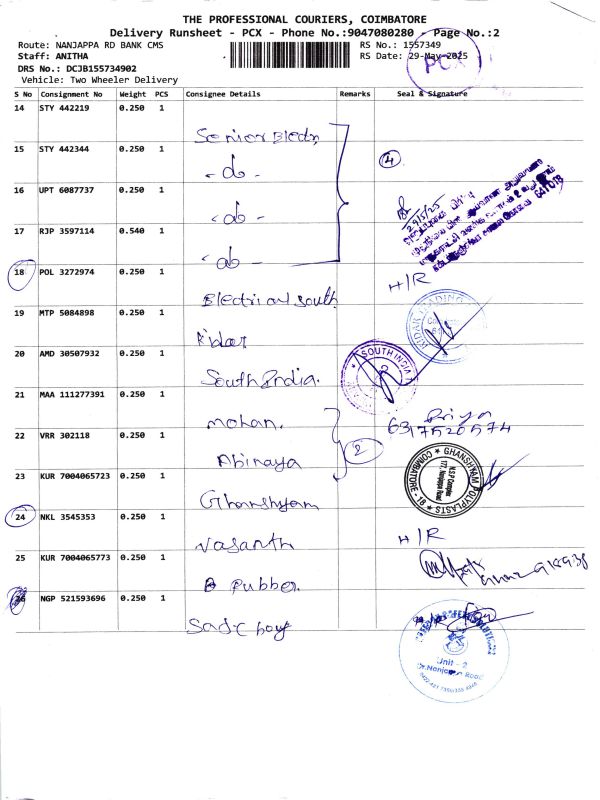 THE PROFESSIONAL COURIERS, COIMBATORE
Delivery Runsheet - PCX - Phone No.:9047080280 - Page No.:2
Route: NANJAPPA RD BANK CMS
RS No.: 1557349
Staff: ANITHA
RS Date: 29-May-2025
PCX
DRS No.: DCJB155734902
Vehicle: Two Wheeler Delivery
S No Consignment No Weight PCS Consignee Details Remarks Seal & Signature
14 STY 442219 0.250 1
Senior Electn
15 STY 442344 0.250 1
- do -
4
16 UPT 6087737 0.250 1
- do -
29/5/25
641018
17 RJP 3597114 0.540 1
- do -
18 POL 3272974 0.250 1
H/R
Electrical south
19 MTP 5084898 0.250 1
Ridar
RIDAR TRADING
20 AMD 30507932 0.250 1
South India.
SOUTH INDIA
21 MAA 111277391 0.250 1
Mohan.
Priya
6317520574
22 VRR 302118 0.250 1
2
Abinaya
23 KUR 7004065723 0.250 1
Ghanshyam
GHANSHYAM POLYPLASTS
COIMBATORE - 18
N.S.P Complex
177, Nanjappa Road
24 NKL 3545353 0.250 1
Vasanth
H/R
25 KUR 7004065773 0.250 1
Rubber
26 NGP 521593696 0.250 1
Unit - 2
Dr.Nanjappa Road